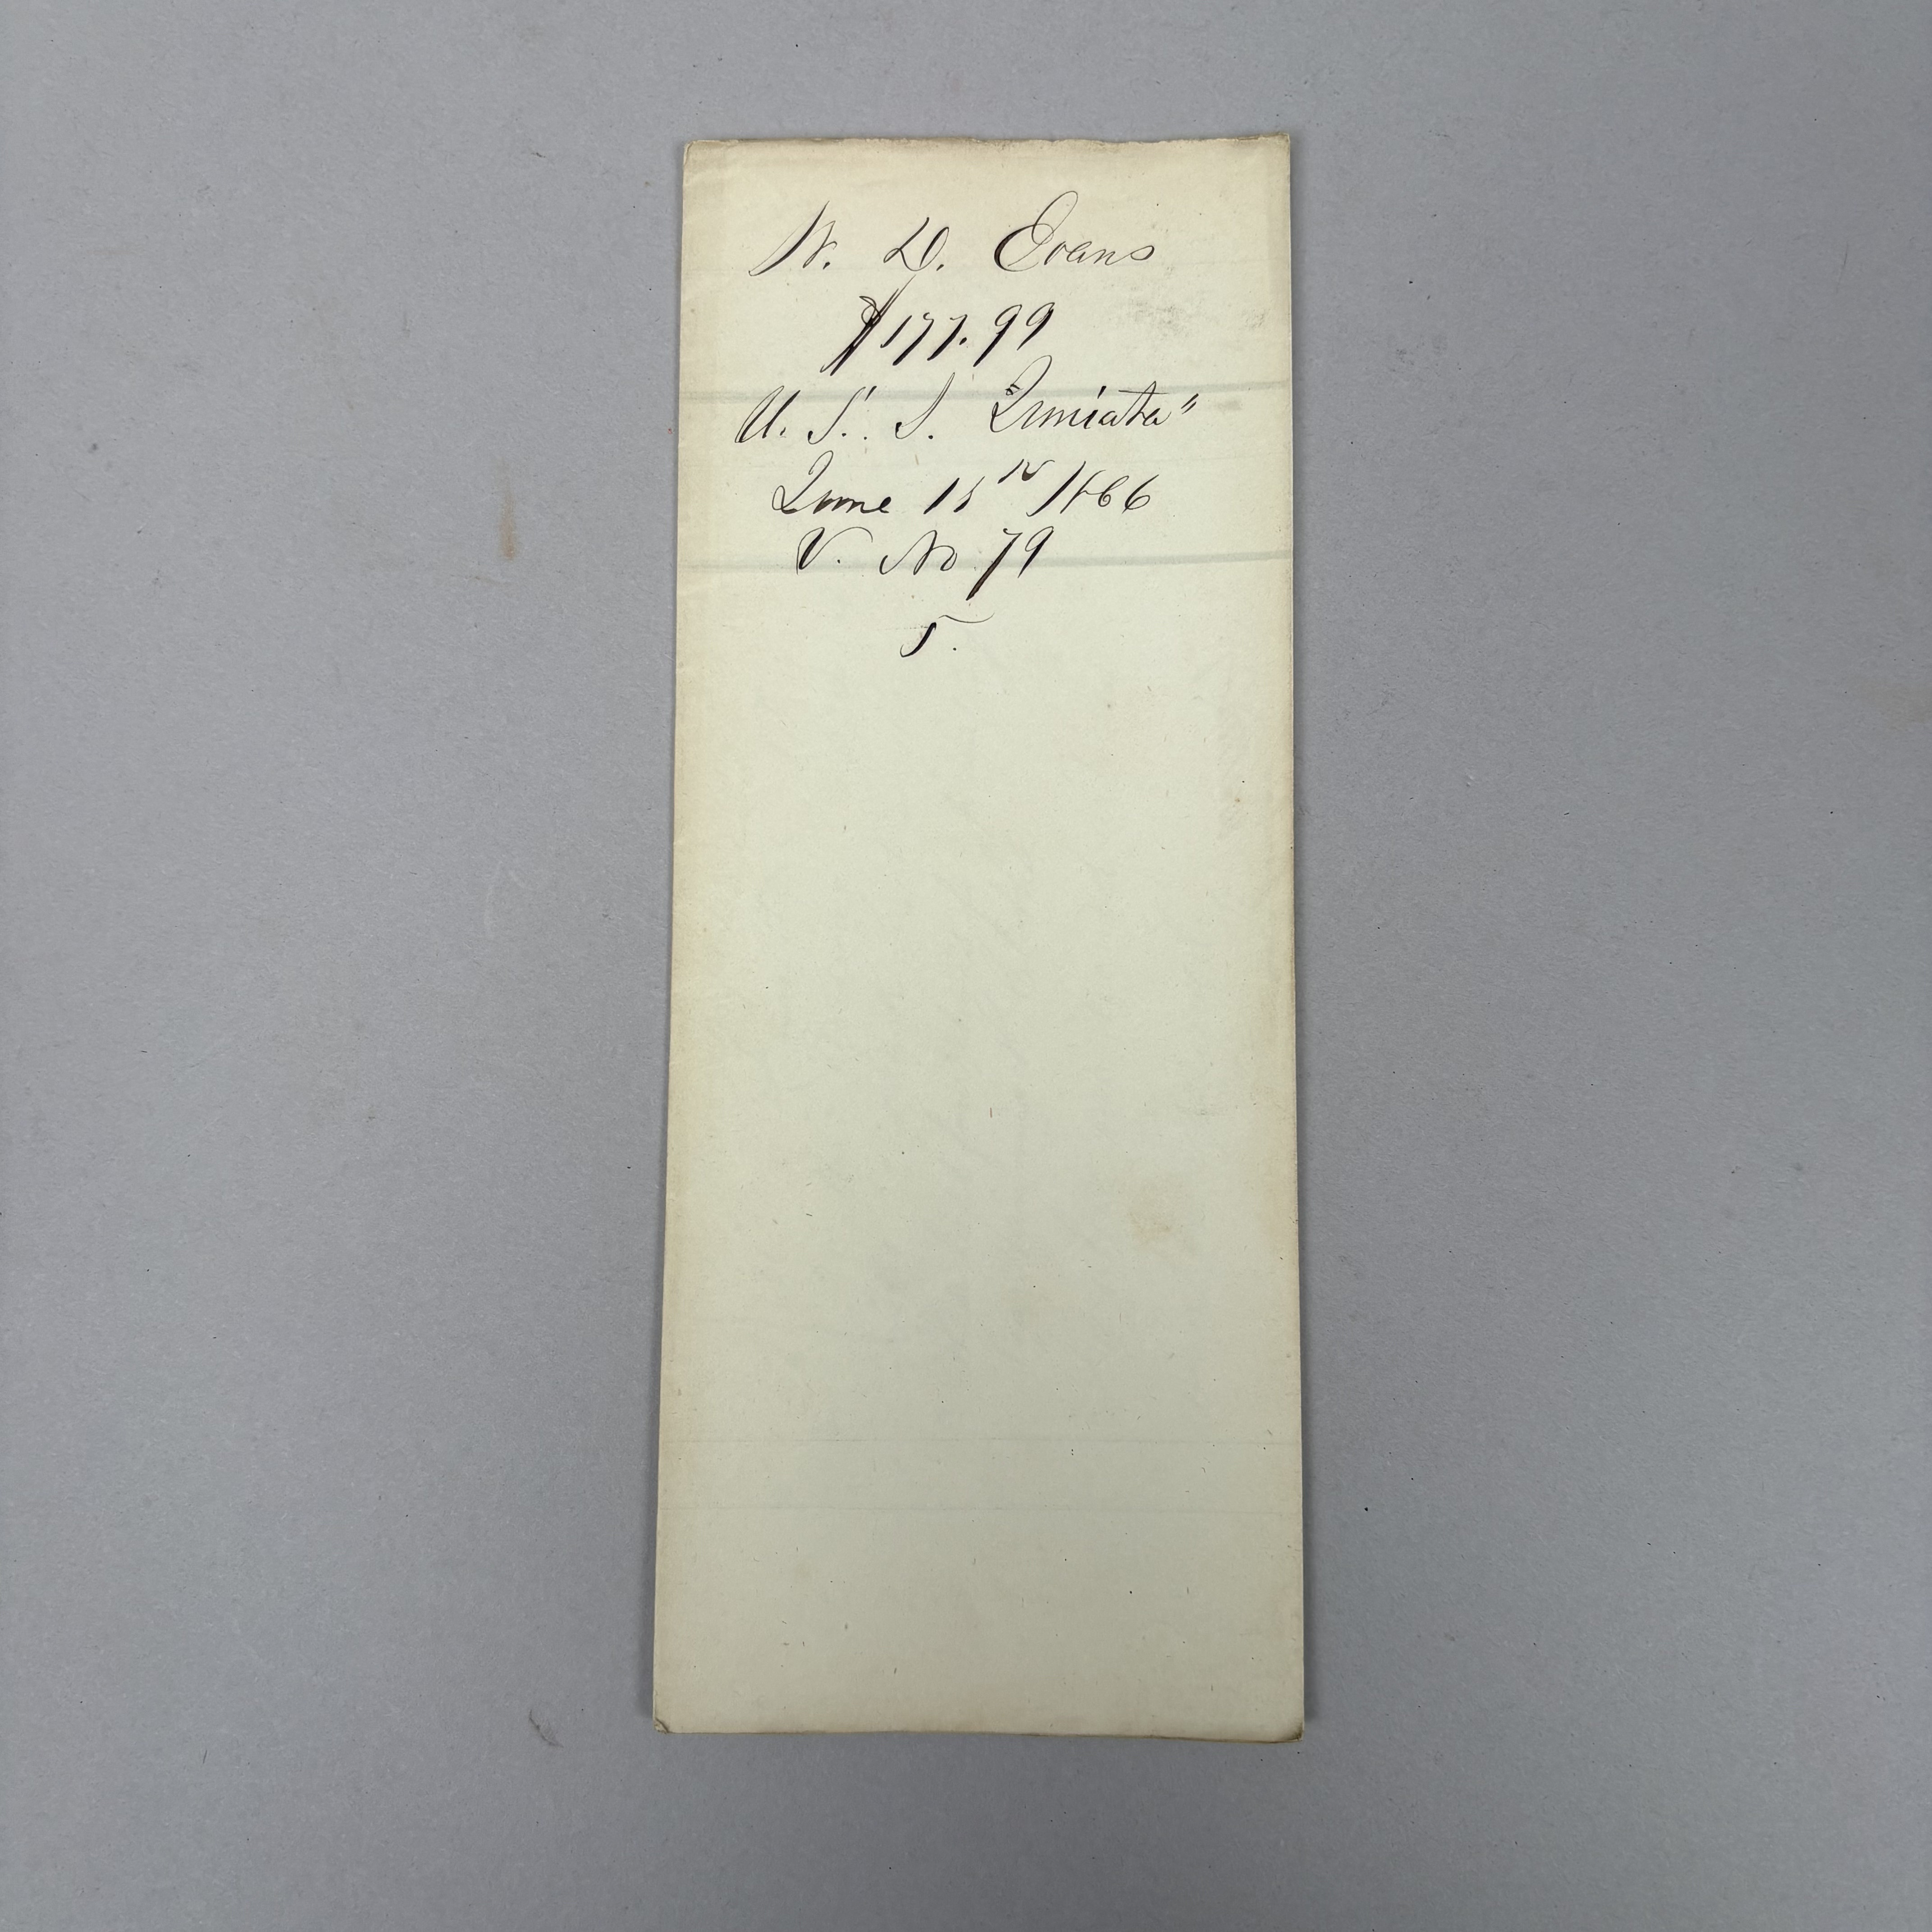 W. D. Evans
$177.99
U. S. S. "Juniata"
June 15th 1866
V. No 79
5.